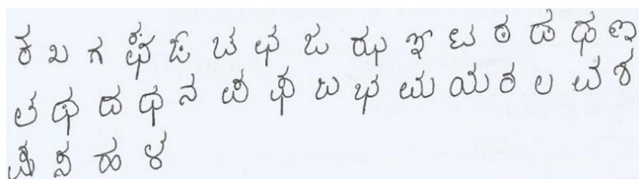 ಕ ಖ ಗ ಘ ಙ ಚ ಛ ಜ ಝ ಞ ಟ ಠ ಡ ಢ ಣ
ತ ಥ ದ ಧ ನ ಪ ಫ ಬ ಭ ಮ ಯ ರ ಲ ವ ಶ
ಷ ಸ ಹ ಳ